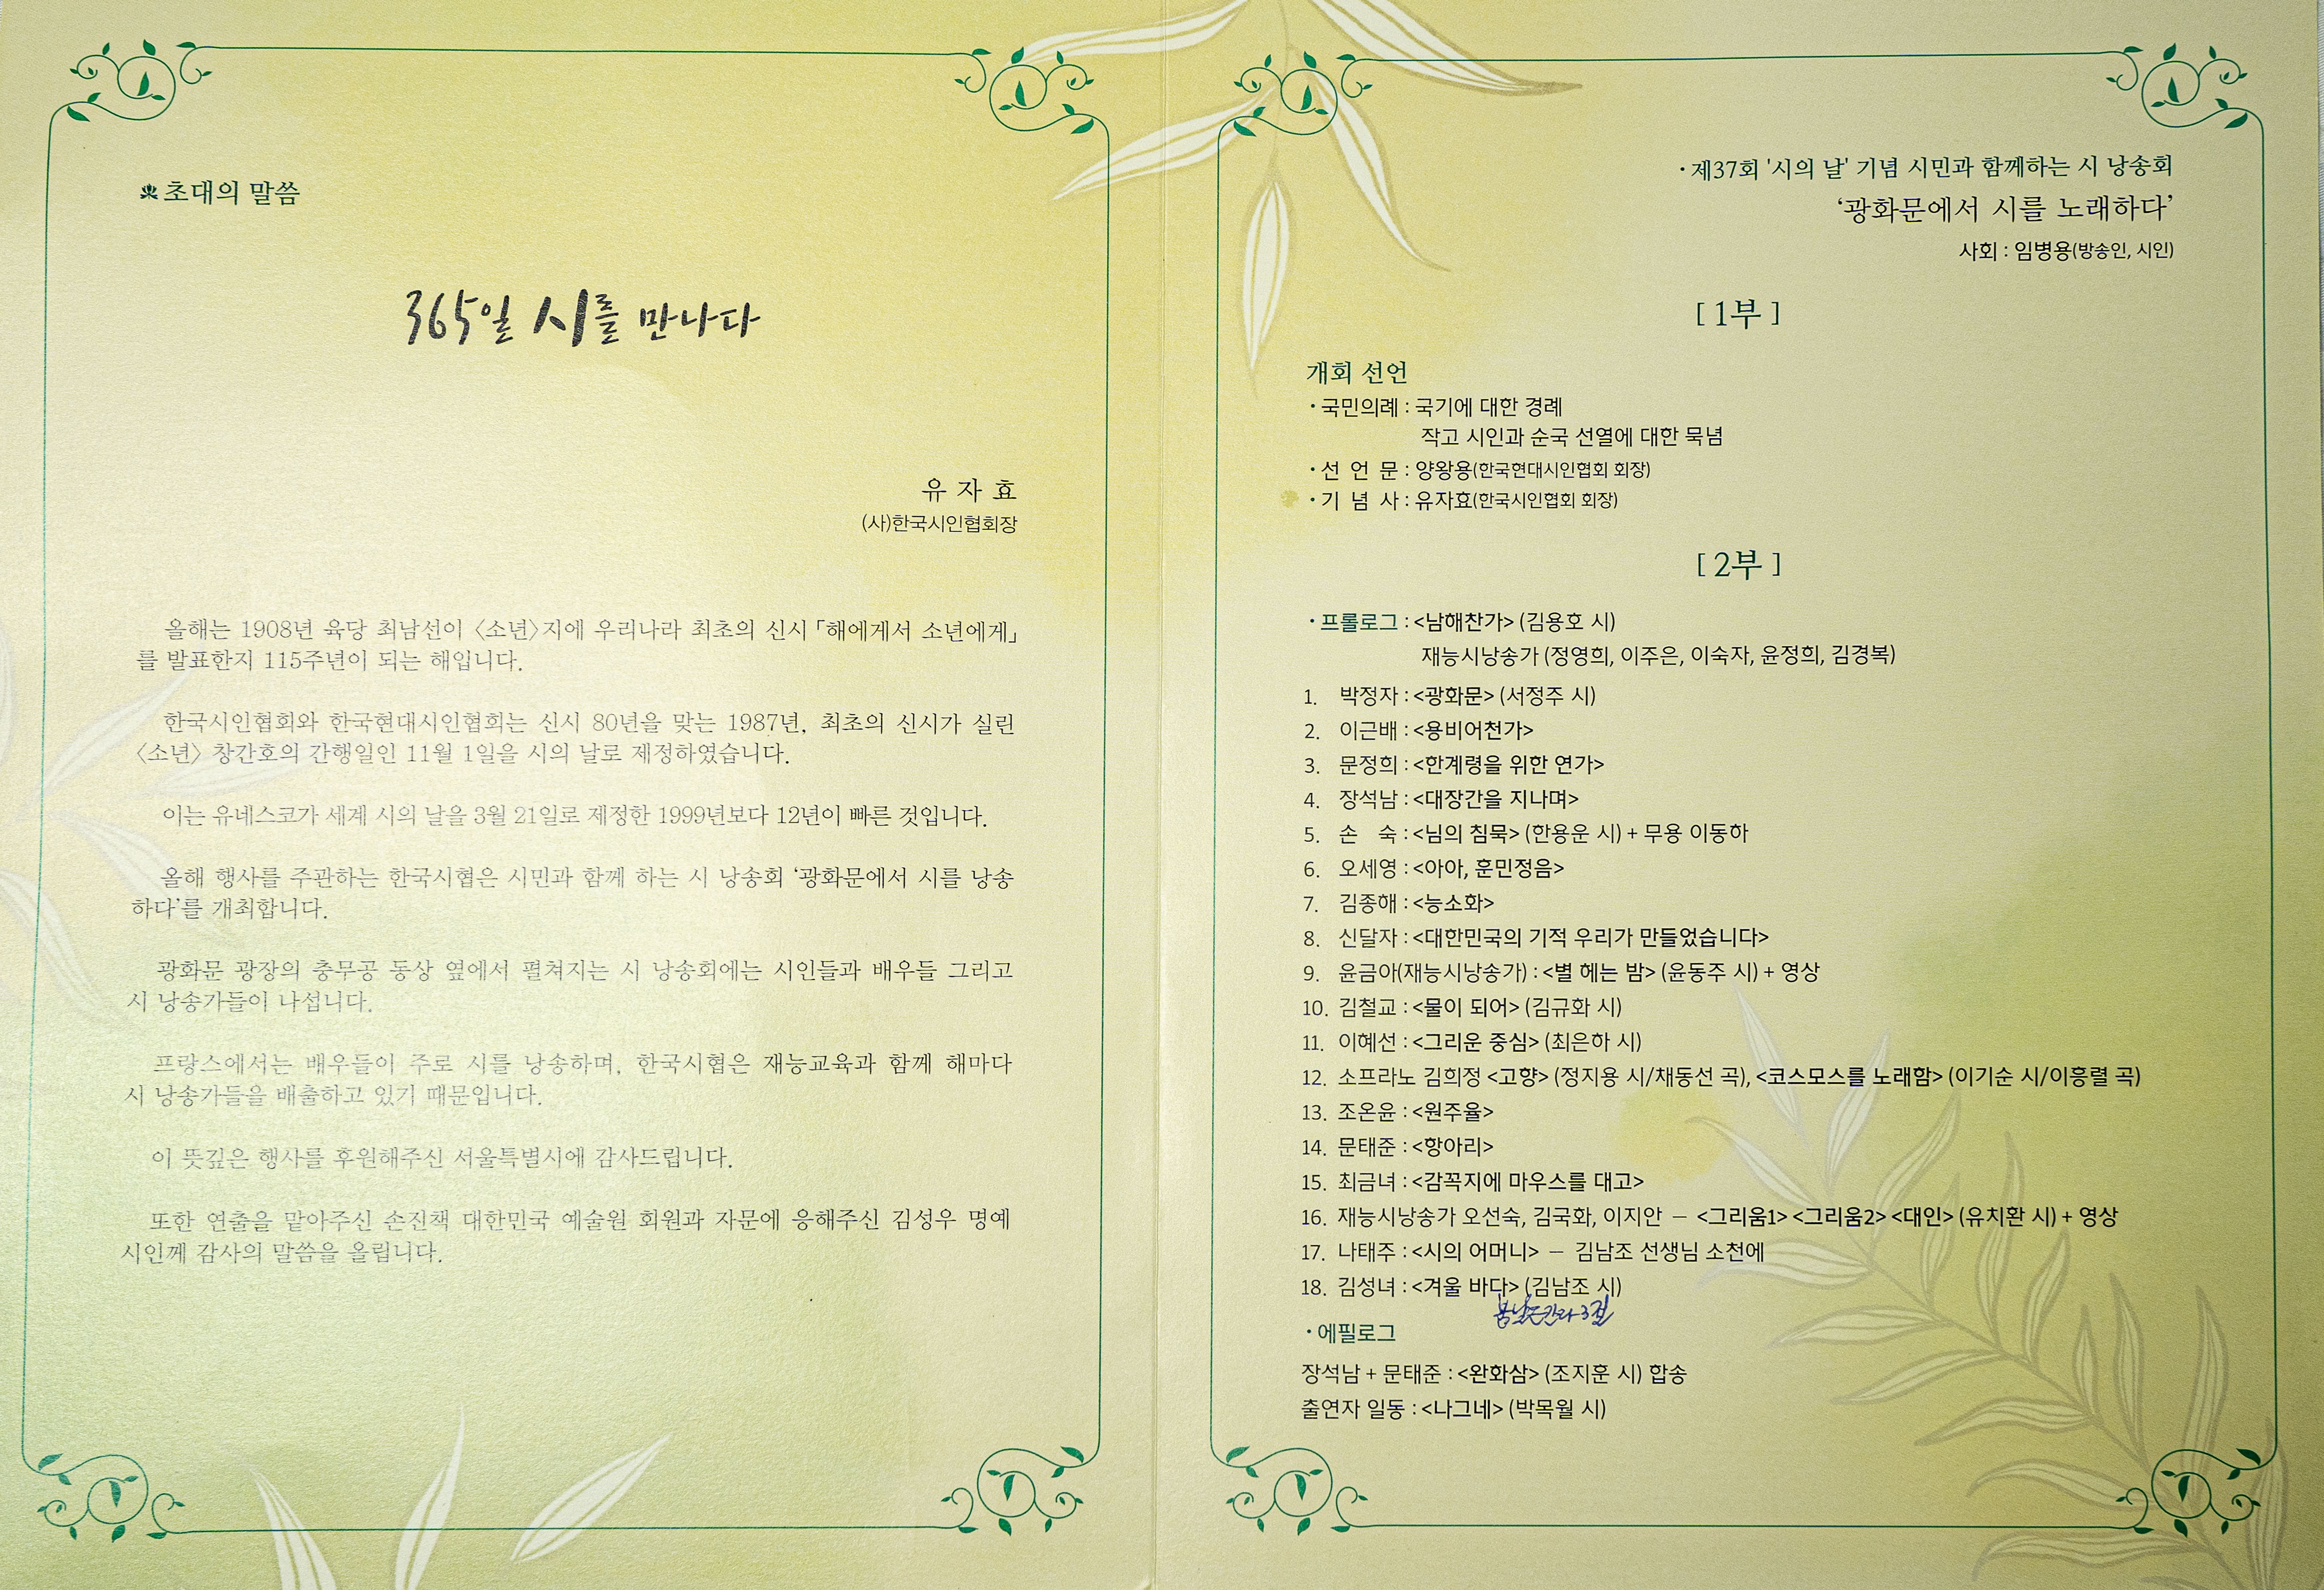 초대의 말씀
365일 시를 만나다
유 자 효
(사)한국시인협회장
올해는 1908년 육당 최남선이 〈소년〉지에 우리나라 최초의 신시 「해에게서 소년에게」
를 발표한지 115주년이 되는 해입니다.
한국시인협회와 한국현대시인협회는 신시 80년을 맞는 1987년, 최초의 신시가 실린
〈소년〉 창간호의 간행일인 11월 1일을 시의 날로 제정하였습니다.
이는 유네스코가 세계 시의 날을 3월 21일로 제정한 1999년보다 12년이 빠른 것입니다.
올해 행사를 주관하는 한국시협은 시민과 함께 하는 시 낭송회 ‘광화문에서 시를 낭송
하다’를 개최합니다.
광화문 광장의 충무공 동상 옆에서 펼쳐지는 시 낭송회에는 시인들과 배우들 그리고
시 낭송가들이 나섭니다.
프랑스에서는 배우들이 주로 시를 낭송하며, 한국시협은 재능교육과 함께 해마다
시 낭송가들을 배출하고 있기 때문입니다.
이 뜻깊은 행사를 후원해주신 서울특별시에 감사드립니다.
또한 연출을 맡아주신 손진책 대한민국 예술원 회원과 자문에 응해주신 김성우 명예
시인께 감사의 말씀을 올립니다.
· 제37회 '시의 날' 기념 시민과 함께하는 시 낭송회
‘광화문에서 시를 노래하다’
사회 : 임병용(방송인, 시인)
[ 1부 ]
개회 선언
· 국민의례 : 국기에 대한 경례
작고 시인과 순국 선열에 대한 묵념
· 선 언 문 : 양왕용(한국현대시인협회 회장)
· 기 념 사 : 유자효(한국시인협회 회장)
[ 2부 ]
· 프롤로그 : <남해찬가> (김용호 시)
재능시낭송가 (정영희, 이주은, 이숙자, 윤정희, 김경복)
1. 박정자 : <광화문> (서정주 시)
2. 이근배 : <용비어천가>
3. 문정희 : <한계령을 위한 연가>
4. 장석남 : <대장간을 지나며>
5. 손 숙 : <님의 침묵> (한용운 시) + 무용 이동하
6. 오세영 : <아아, 훈민정음>
7. 김종해 : <능소화>
8. 신달자 : <대한민국의 기적 우리가 만들었습니다>
9. 윤금아(재능시낭송가) : <별 헤는 밤> (윤동주 시) + 영상
10. 김철교 : <물이 되어> (김규화 시)
11. 이혜선 : <그리운 중심> (최은하 시)
12. 소프라노 김희정 <고향> (정지용 시/채동선 곡), <코스모스를 노래함> (이기순 시/이흥렬 곡)
13. 조온윤 : <원주율>
14. 문태준 : <항아리>
15. 최금녀 : <감꼭지에 마우스를 대고>
16. 재능시낭송가 오선숙, 김국화, 이지안 – <그리움1> <그리움2> <대인> (유치환 시) + 영상
17. 나태주 : <시의 어머니> – 김남조 선생님 소천에
18. 김성녀 : <겨울 바다> (김남조 시)
3절
· 에필로그
장석남 + 문태준 : <완화삼> (조지훈 시) 합송
출연자 일동 : <나그네> (박목월 시)